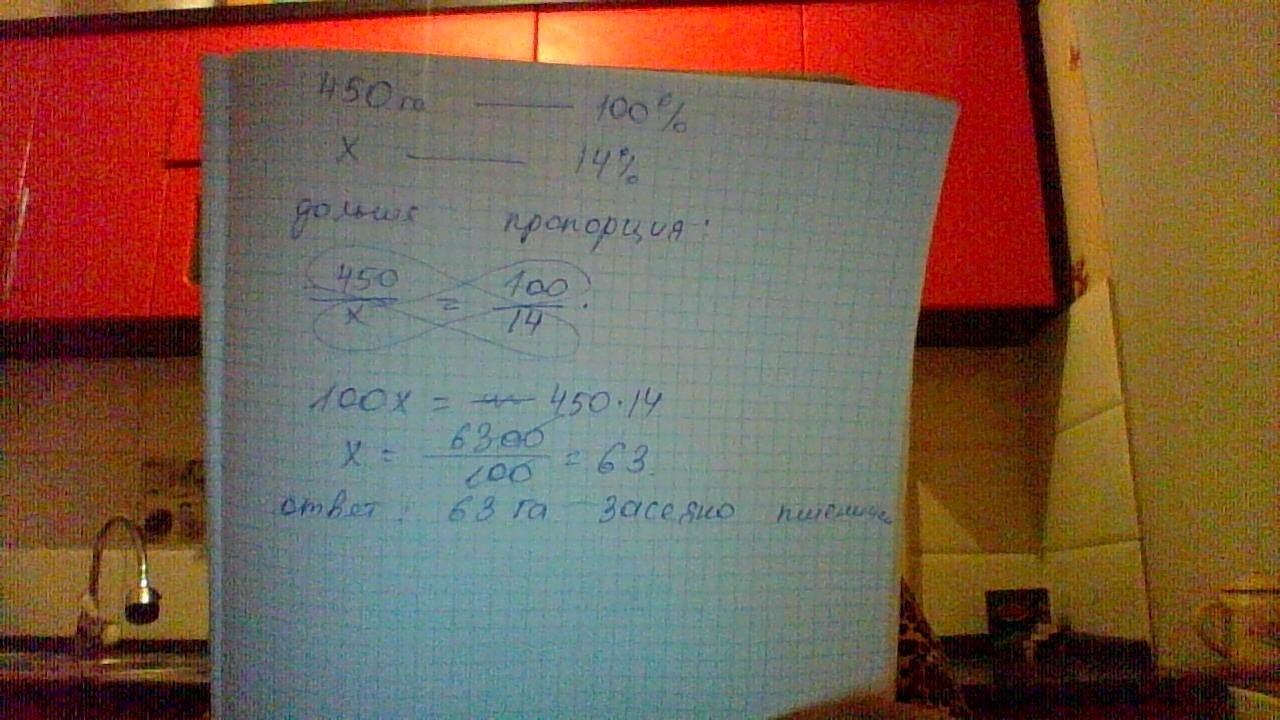 450 га — 100%
x — 14%
дальше пропорция:
450/x = 100/14.
100x = 450·14
x = 6300/100 = 63.
ответ: 63 га засеяно пшеницей